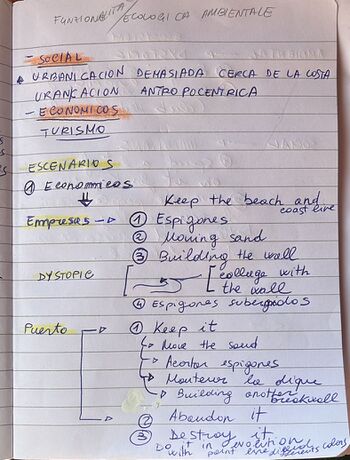 FUNZIONALITA/ECOLOGICA AMBIENTALE
- SOCIAL
URBANICACION DEMASIADA CERCA DE LA COSTA
URANKACION ANTROPOCENTRICA
- ECONOMICOS
TURISMO
ESCENARIOS
① Economicos
Keep the beach and
coast live
Empresas → ① Espigones
② Moving sand
③ Building the wall
DYSTOPIC
collage with
the wall
④ Espigones subergados
Puerto
① Keep it
Move the sand
Acortar espigones
Mantener la dique
Building another
breakwall
② Abandon it
③ Destroy it
Do it in evolution
with point line and
differents colors